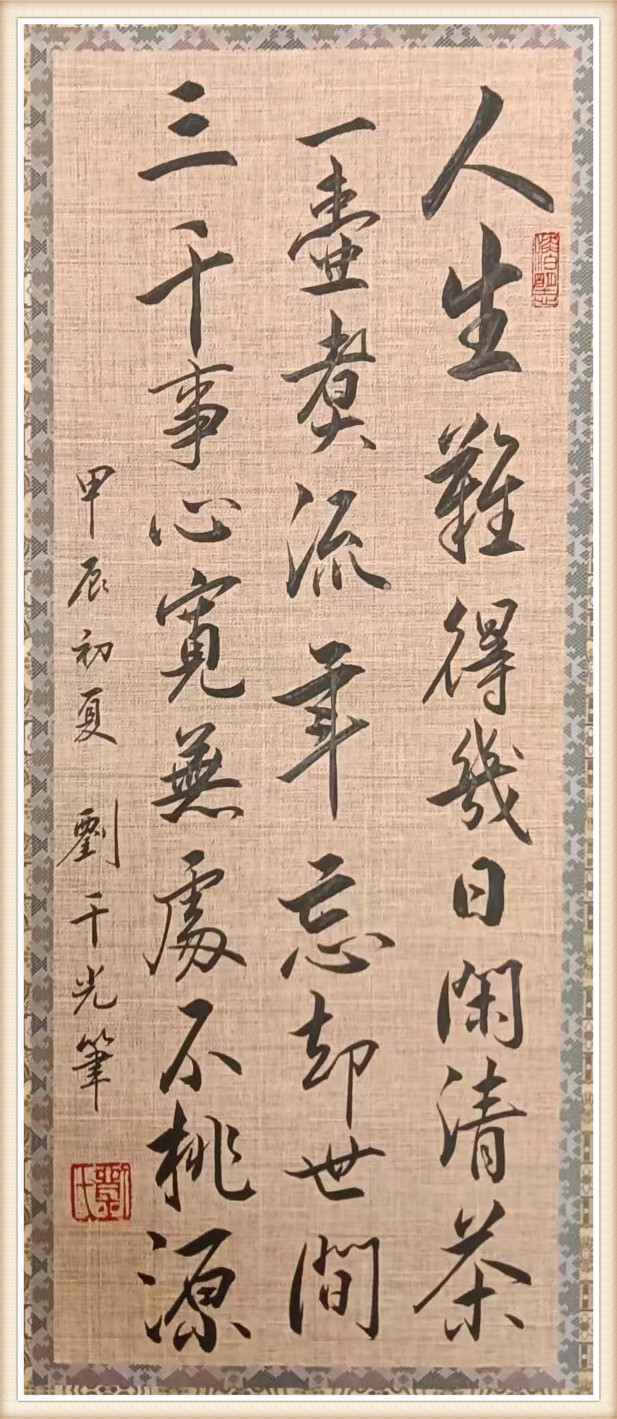 人生難得幾日閑清茶
一壺煑流年忘却世間
三千事心寬無處不桃源
甲辰初夏 劉千光筆